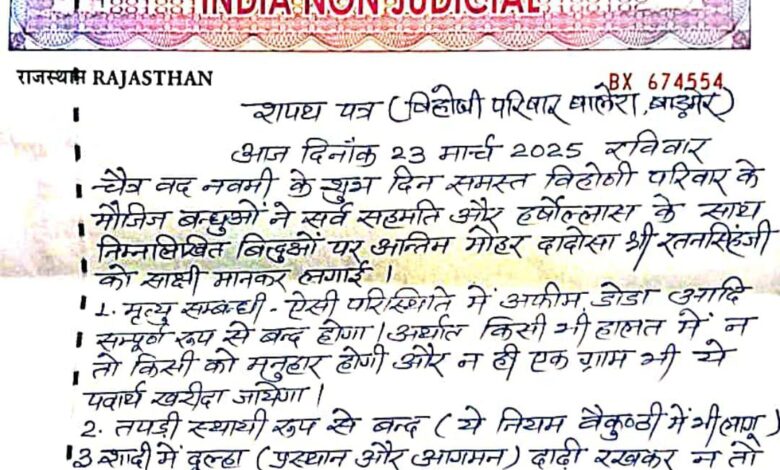 INDIA NON JUDICIAL
राजस्थान RAJASTHAN
BX 674554
शपथ पत्र (विहोणी परिवार बालेरा, बाड़मेर)
आज दिनांक 23 मार्च 2025 रविवार
चैत्र वद नवमी के शुभ दिन समस्त विहोणी परिवार के
मौजिज बन्धुओं ने सर्व सहमति और हर्षोल्लास के साथ
निम्नलिखित बिंदुओं पर अन्तिम मोहर दादोसा श्री रतनसिंहजी
को साक्षी मानकर लगाई ।
1. मृत्यु सम्बन्धी - ऐसी परिस्थिति में अफीम, डोडा आदि
सम्पूर्ण रूप से बन्द होगा । अर्थात किसी भी हालत में न
तो किसी को मनुहार होगी और न ही एक ग्राम भी ये
पदार्थ खरीदा जायेगा ।
2. तपडी स्थायी रूप से बन्द ( ये नियम बैकुण्ठी में भी लागू )
3 शादी में दूल्हा (प्रस्थान और आगमन) दाढी रखकर न तो